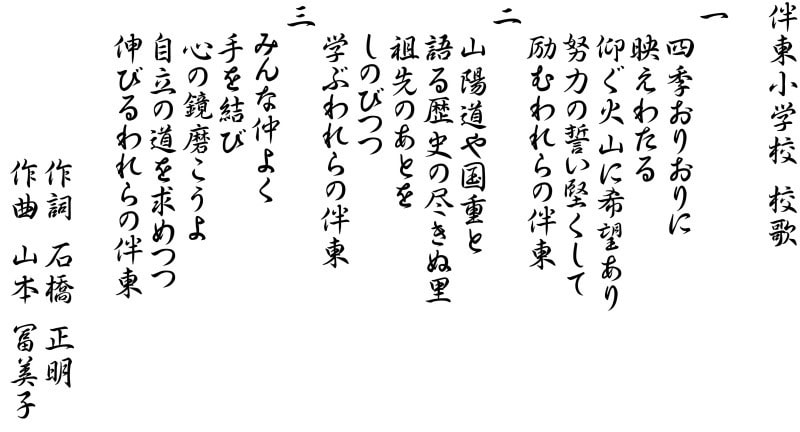 伴東小学校 校歌
一
四季おりおりに
映えわたる
仰ぐ火山に希望あり
努力の誓い堅くして
励むわれらの伴東
二
山陽道や国重と
語る歴史の尽きぬ里
祖先のあとを
しのびつつ
学ぶわれらの伴東
三
みんな仲よく
手を結び
心の鏡磨こうよ
自立の道を求めつつ
伸びるわれらの伴東
作詞 石橋 正明
作曲 山本 冨美子